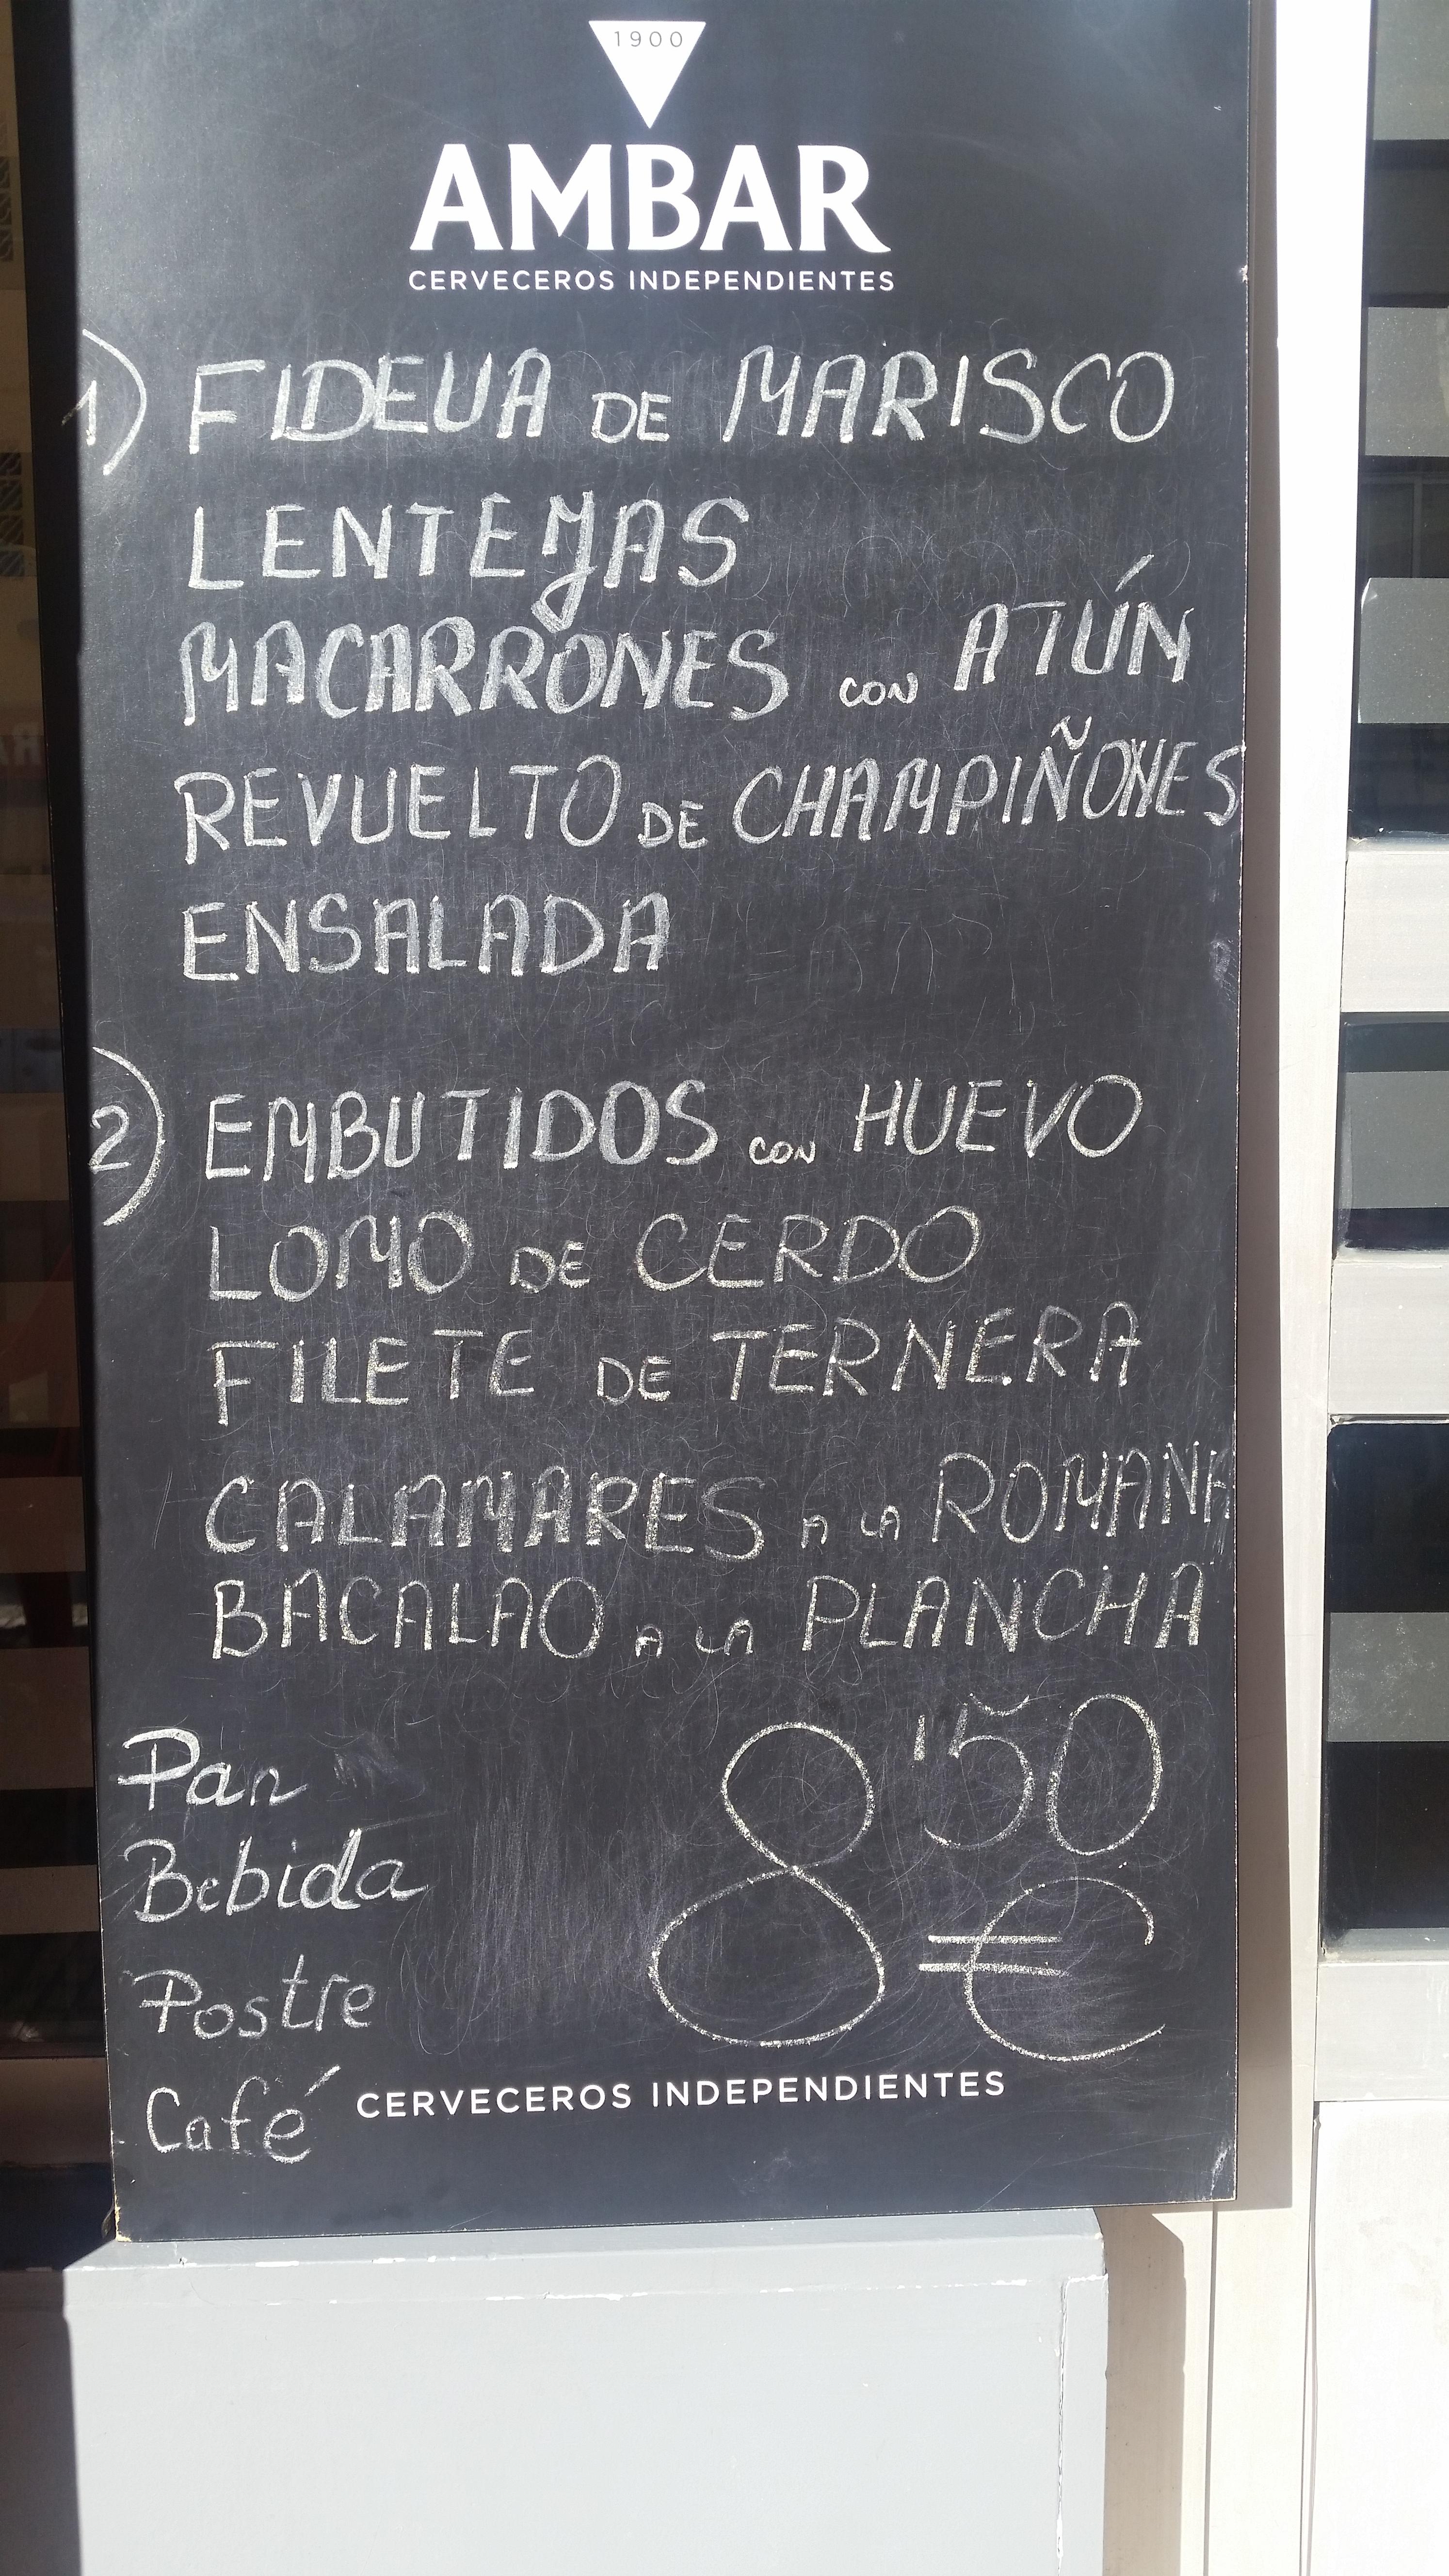 1900
AMBAR
CERVECEROS INDEPENDIENTES
1) FIDEUA DE MARISCO
LENTEJAS
MACARRONES CON ATÚN
REVUELTO DE CHAMPIÑONES
ENSALADA
2) EMBUTIDOS CON HUEVO
LOMO DE CERDO
FILETE DE TERNERA
CALAMARES A LA ROMANA
BACALAO A LA PLANCHA
Pan
Bebida
Postre
Café
8'50
€
CERVECEROS INDEPENDIENTES